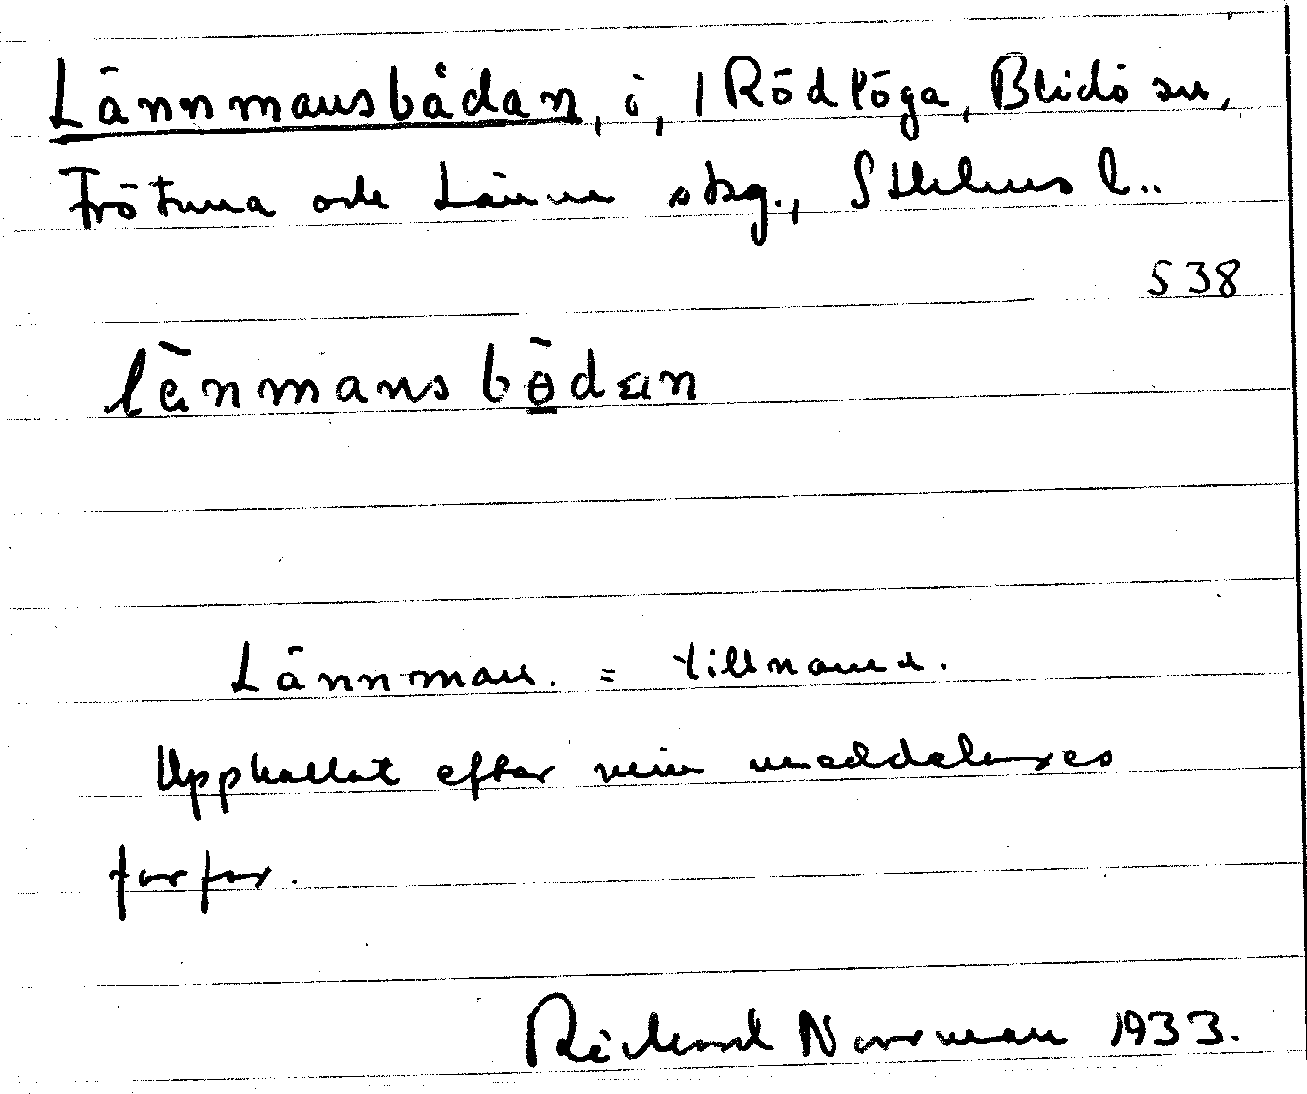 Lännmansbådan, ö, 1 Rödlöga, Blidö sn,
Frötuna och Länna skg., Sthlms l..
S 38
länmansbödan
Lännman. = tillnamn.
Uppkallat efter min meddelares
farfar.
Richard Norrman 1933.